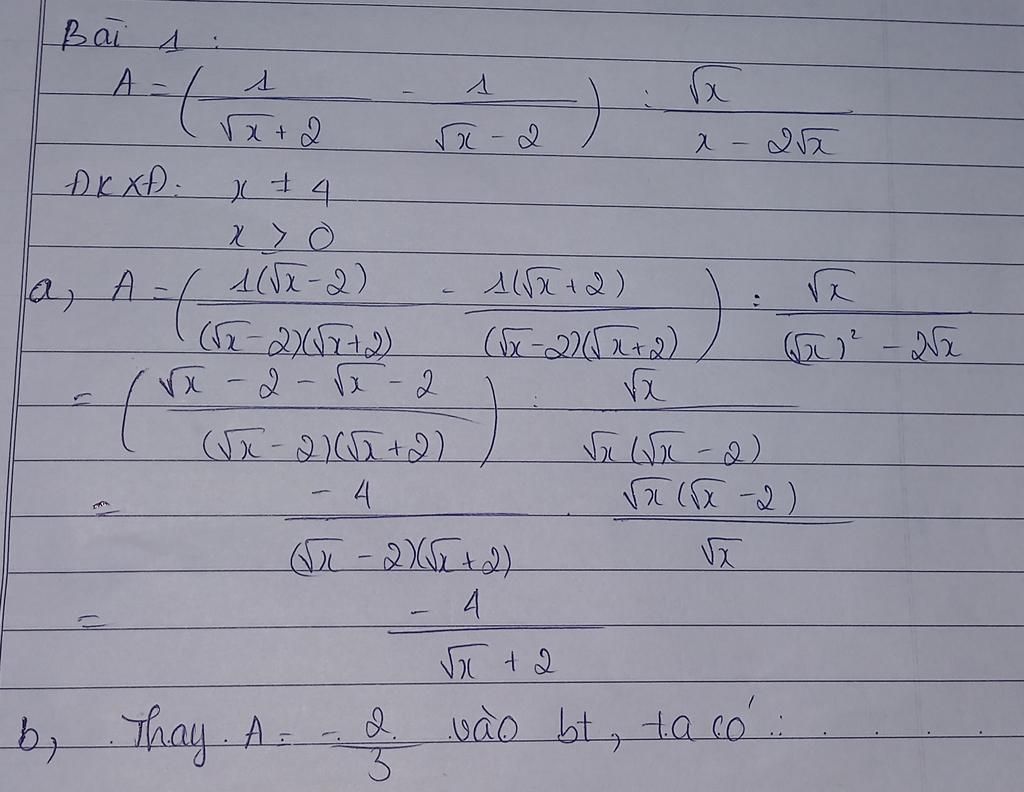 Bài 1 :
A = ( 1/(√x + 2) - 1/(√x - 2) ) : √x/(x - 2√x)
ĐKXĐ: x ≠ 4
x ≥ 0
a, A = ( 1(√x - 2)/((√x - 2)(√x + 2)) - 1(√x + 2)/((√x - 2)(√x + 2)) ) : √x/((√x)² - 2√x)
= ( (√x - 2 - √x - 2)/((√x - 2)(√x + 2)) ) : √x/(√x(√x - 2))
= -4/((√x - 2)(√x + 2)) . √x(√x - 2)/√x
= -4/(√x + 2)
b, Thay A = -2/3 vào bt, ta có : . . . .